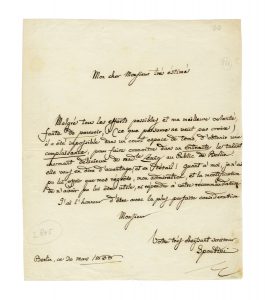 Mon cher Monsieur très estimé
Malgré tous les efforts possibles et ma meilleure volonté,
faute de pouvoir, (ce que personne ne veut pas croire)
il a été impossible dans un court espace de tems d'obtenir une
complaisance, pour faire connoître dans un entracte les talents
au Public de Berlin
elle veut en dire d'avantage, et en Général! quant à moi, je n'ai
pu lui offrir que mes regrets, mon admiration, et la mortification
de n'avoir pu lui être utile, et répondre à votre recommandation.
J'ai l'honneur d'être avec la plus parfaite considération
Monsieur
Votre très obéissant serviteur
Spontini
Berlin, ce 30 mars 1838